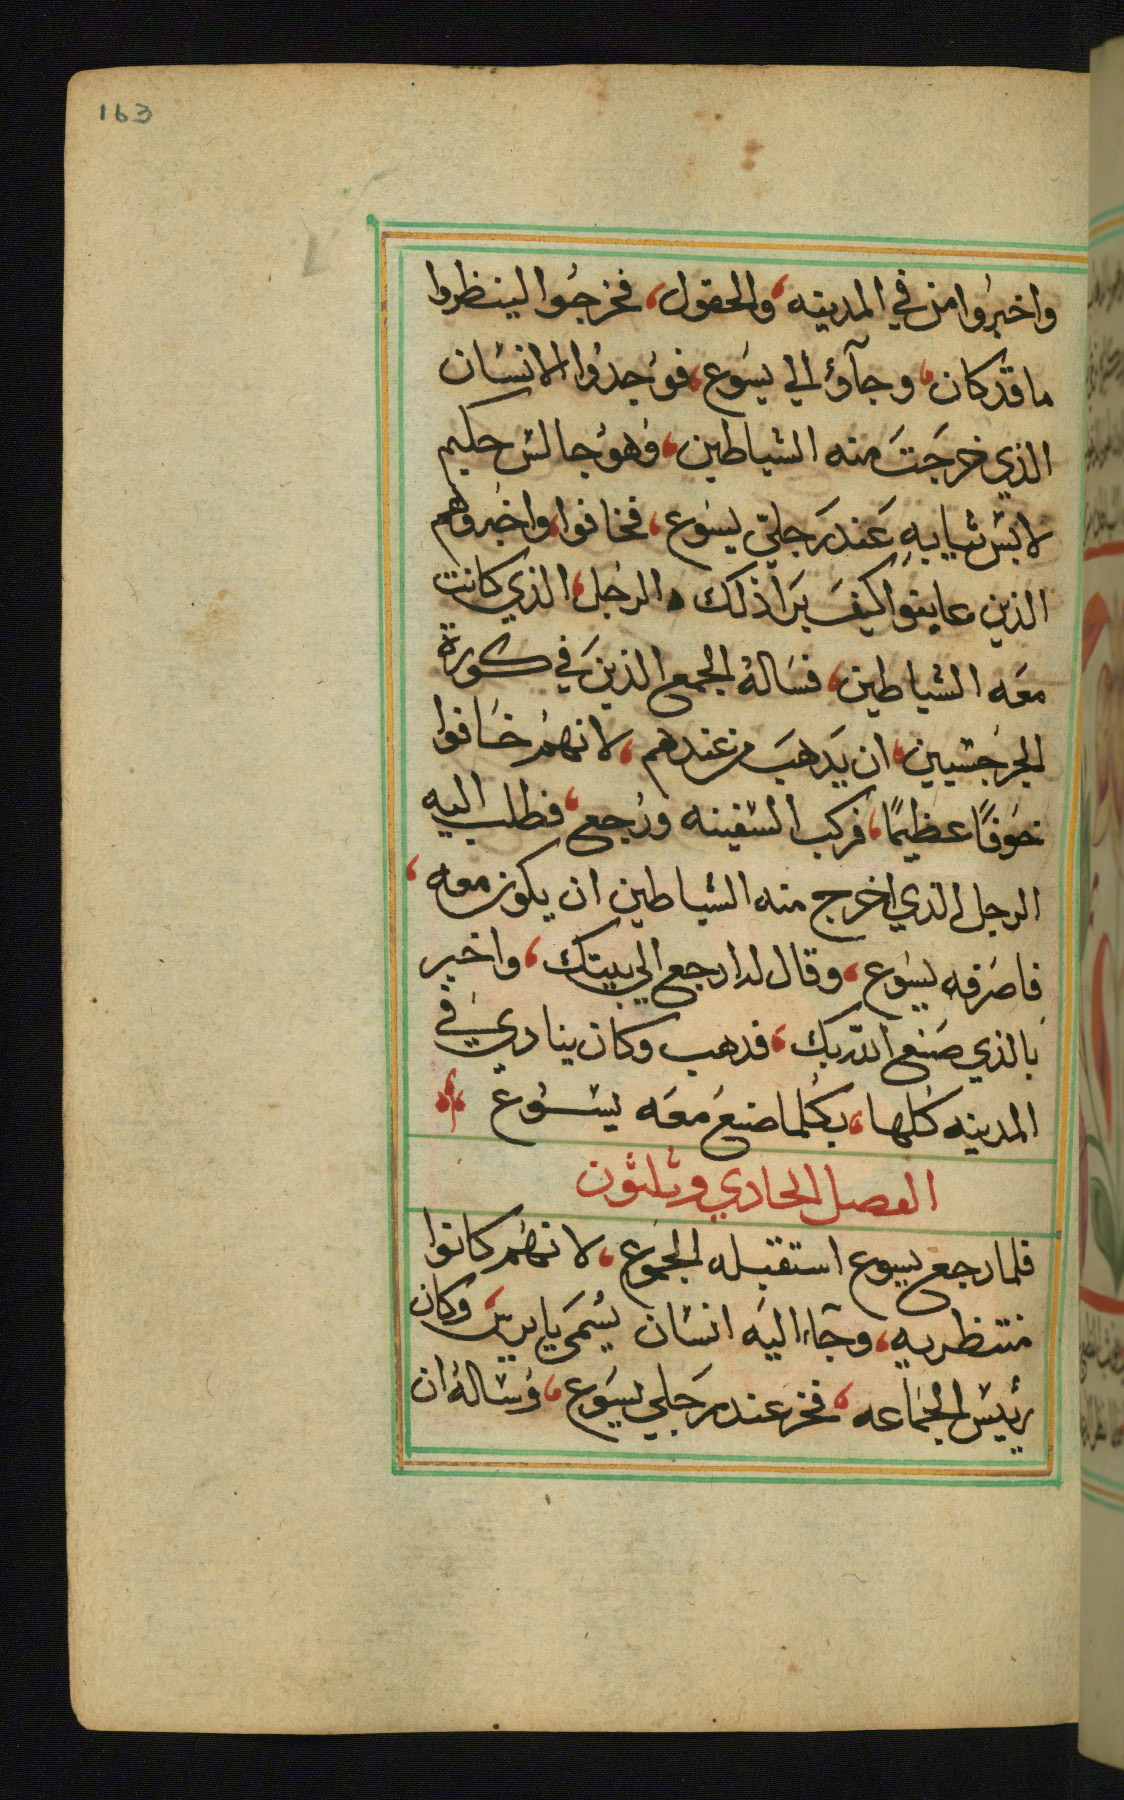 163
واخبروا من في المدينه، والحقول، فخرجوا لينظروا
ما قد كان، وجآؤ الي يسوع، فوجدوا الانسان
الذي خرجت منه الشياطين، وهو جالس حكيم
لابس ثيابه عند رجليّ يسوع، فخافوا، واخبروهم
الذين عاينوا كيف برا ذلك الرجل، الذي كانت
معه الشياطين، فساله الجمع الذين في كورة
الجرجسيين، ان يدهب من عندهم، لانهم خافوا
خوفًا عظيمًا، فركب السفينه ورجع، فطلب اليه
الرجل الذي اخرج منه الشياطين ان يكون معه،
فاصرفه يسوع، وقال له ارجع الي بيتك، واخبر
بالذي صنع الله بك، فدهب وكان ينادي في
المدينه كلها، بكلما صنع معه يسوع
الفصل الحادي وثلثون
فلما رجع يسوع استقبله الجموع، لانهم كانوا
منتظريه، وجآء اليه انسان يسمى يايرس، وكان
رئيس الجماعه، فخر عند رجلي يسوع، وساله ان